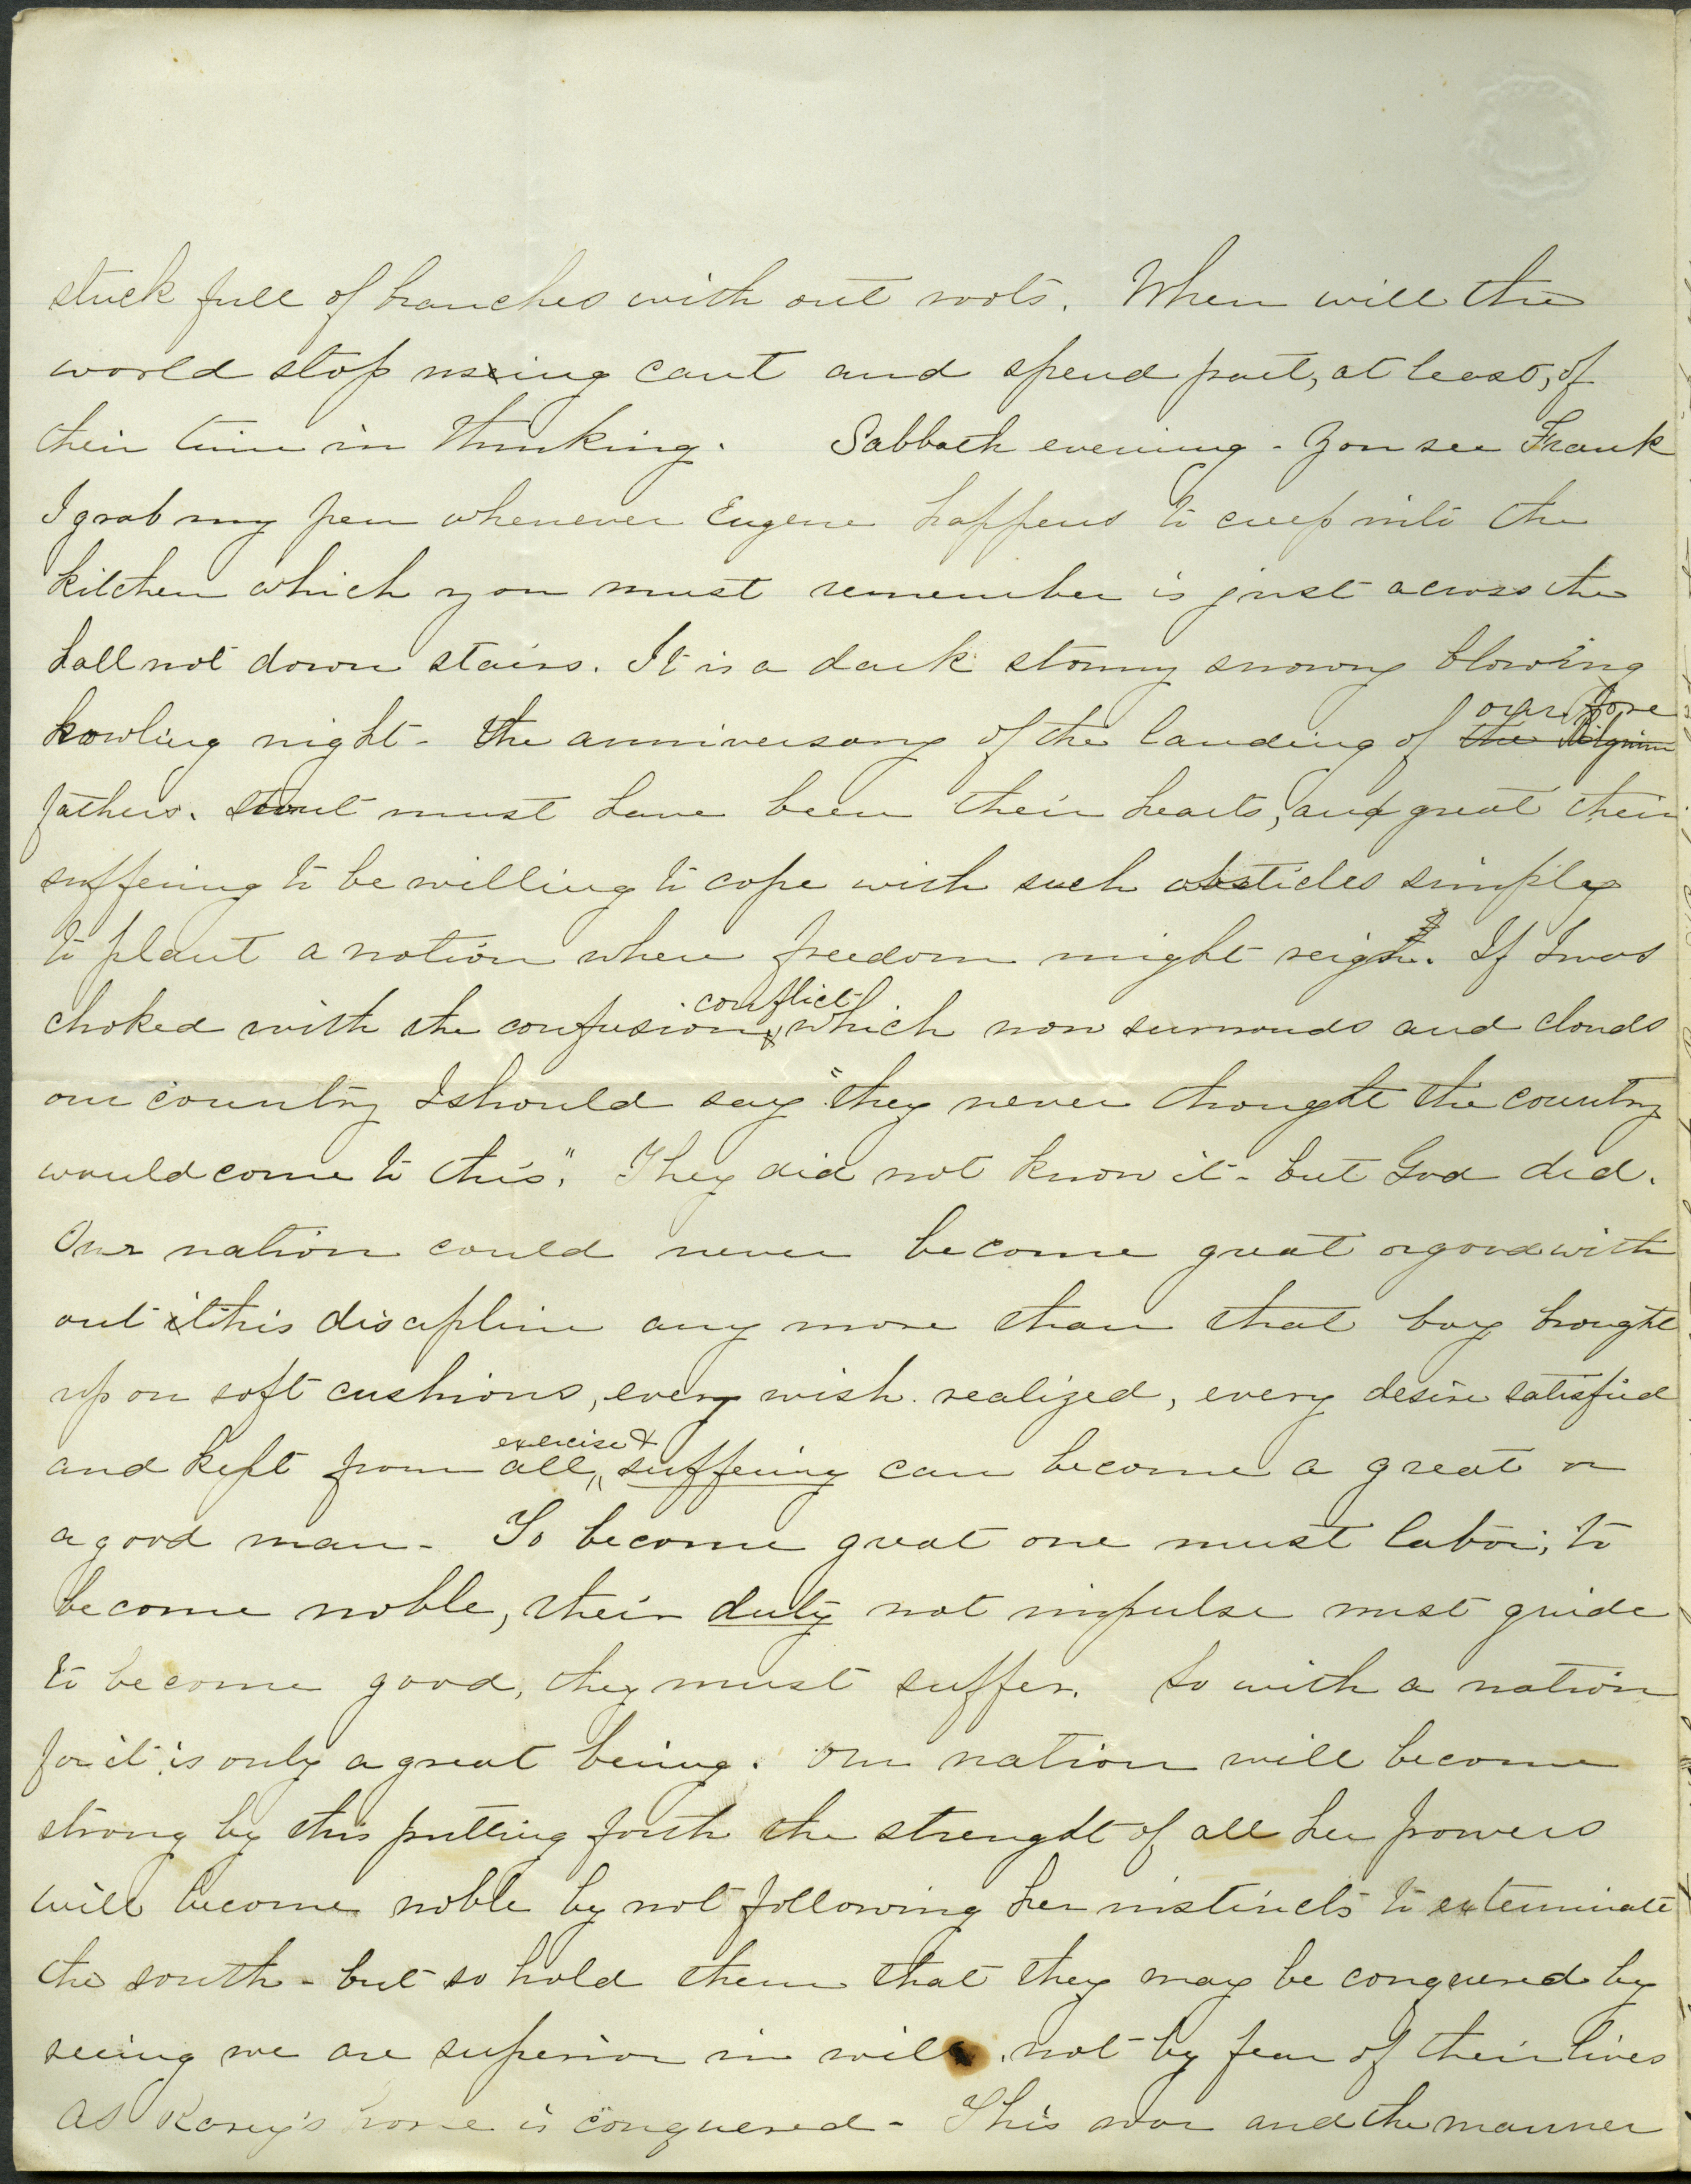 stuck full of branches with out roots. When will the
world stop using cant and spend part, at least, of
their time in thinking. Sabbath evening - You see Frank
I grab my pen whenever Eugene happens to creep into the
kitchen which you must remember is just across the
hall not down stairs. It is a dark stormy snowy blowing
howling night - the anniversary of the landing of the Pilgrim our fore
fathers. Stout must have been their hearts, and great their
suffering to be willing to cope with such obsticles simply
to plant a nation where freedom might reign. If I was
choked with the confusion & conflict which now surrounds and clouds
our country I should say "they never thought the country
would come to this". They did not know it - but God did.
Our nation could never become great or good with
out this discipline any more than that boy brought
up on soft cushions, every wish realized, every desire satisfied
and kept from all exercise & suffering can become a great or
a good man - To become great one must labor; to
become noble, their duty not impulse must guide
to become good, they must suffer. So with a nation
for it is only a great being. Our nation will become
strong by this putting forth the strenght of all her powers
will become noble by not following her instincts to exterminate
the south - but so hold them that they may be conquered by
seeing we are superior in will, not by fear of their lives
as Rarey's horse is conquered - This war and the manner